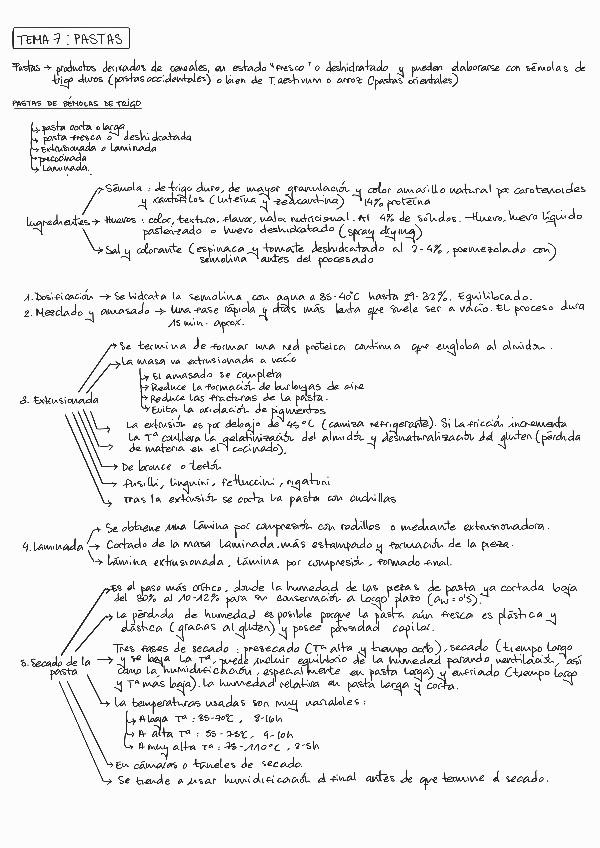 TEMA 7: PASTAS
Pastas → productos derivados de cereales, en estado "fresco" o deshidratado y pueden elaborarse con sémolas de
trigo duros (pastas occidentales) o bien de T. aestivum o arroz (pastas orientales)
PASTAS DE SÉMOLAS DE TRIGO
↳ pasta corta o larga
↳ pasta fresca o deshidratada
↳ Extrusionada o laminada
↳ precocinada
↳ Laminada.
Ingredientes
→ Sémola: de trigo duro, de mayor granulación y color amarillo natural por carotenoides
y xantofilas (luteina y zeaxantina) 14% proteína
→ Huevos: color, textura, flavor, valor nutricional. Al 4% de sólidos. Huevo, huevo líquido
pasterizado o huevo deshidratado (spray drying)
→ Sal y colorante (espinaca y tomate deshidratado al 2-4%, premezclado con)
semolina antes del procesado
1. Dosificación → Se hidrata la semolina con agua a 35-40°C hasta 29-32%. Equilibrado.
2. Mezclado y amasado → Una fase rápida y otras más lenta que suele ser a vacío. El proceso dura
15 min. aprox.
3. Extrusionada
→ Se termina de formar una red proteica continua que engloba al almidón.
→ La masa va extrusionada a vacío
↳ El amasado se completa
↳ Reduce la formación de burbujas de aire
↳ Reduce las fracturas de la pasta.
↳ Evita la oxidación de pigmentos
→ La extrusión es por debajo de 45°C (camisa refrigerante). Si la fricción incrementa
la Tª conlleva la gelatinización del almidón y desnaturalización del gluten (pérdida
de materia en el cocinado).
→ De bronce o teflón
→ fusilli, linguini, fettuccini, rigatoni
→ Tras la extrusión se corta la pasta con cuchillas
4. Laminada
→ Se obtiene una lámina por compresión con rodillos o mediante extrusionadora.
→ Cortado de la masa laminada, más estampado y formación de la pieza.
→ Lámina extrusionada, lámina por compresión, formado final.
5. Secado de la
pasta
→ Es el paso más crítico, donde la humedad de las piezas de pasta ya cortada baja
del 30% al 10-12% para su conservación a largo plazo (aw=0'5).
→ La pérdida de humedad es posible porque la pasta aún fresca es plástica y
elástica (gracias al gluten) y posee porosidad capilar.
→ Tres fases de secado: presecado (Tª alta y tiempo corto), secado (tiempo largo
y se baja la Tª, puede incluir equilibrio de la humedad parando ventilación, así
como la humidificación, especialmente en pasta larga) y enfriado (tiempo largo
y Tª más baja). La humedad relativa en pasta larga y corta.
→ La temperaturas usadas son muy variables:
↳ A baja Tª: 35-70°C, 8-16h
↳ A alta Tª: 55-75°C, 4-10h
↳ A muy alta Tª: 75-110°C, 2-5h
→ En cámaras o túneles de secado.
→ Se tiende a usar humidificación al final antes de que termine el secado.